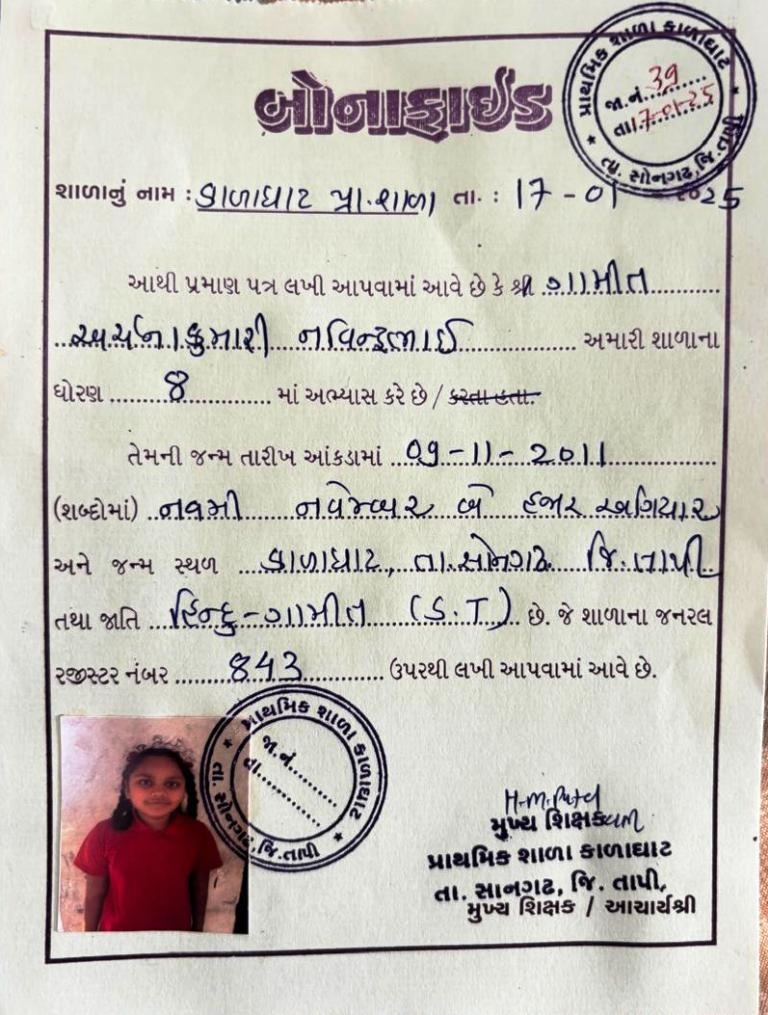 બોનાફાઈડ
પ્રાથમિક શાળા કાળાઘાટ
જા.નં. 39
તા. 17-01-25
તા. સોનગઢ, જિ. તાપી
શાળાનું નામ : કાળાઘાટ પ્રા.શાળા તા. : 17 - 01 2025
આથી પ્રમાણ પત્ર લખી આપવામાં આવે છે કે શ્રી ગામીત
અર્ચનાકુમારી નવિન્દ્રભાઈ અમારી શાળાના
ધોરણ 8 માં અભ્યાસ કરે છે / કરતા હતા.
તેમની જન્મ તારીખ આંકડામાં 09-11-2011
(શબ્દોમાં) નવમી નવેમ્બર બે હજાર અગિયાર
અને જન્મ સ્થળ કાળાઘાટ, તા.સોનગઢ જિ.તાપી
તથા જાતિ હિન્દુ-ગામીત (S.T) છે. જે શાળાના જનરલ
રજીસ્ટર નંબર 843 ઉપરથી લખી આપવામાં આવે છે.
પ્રાથમિક શાળા કાળાઘાટ
જા.નં.
તા.
તા. સોનગઢ, જિ.તાપી
H.M.Patel
મુખ્ય શિક્ષક
પ્રાથમિક શાળા કાળાઘાટ
તા. સાનગઢ, જિ. તાપી,
મુખ્ય શિક્ષક / આચાર્યશ્રી